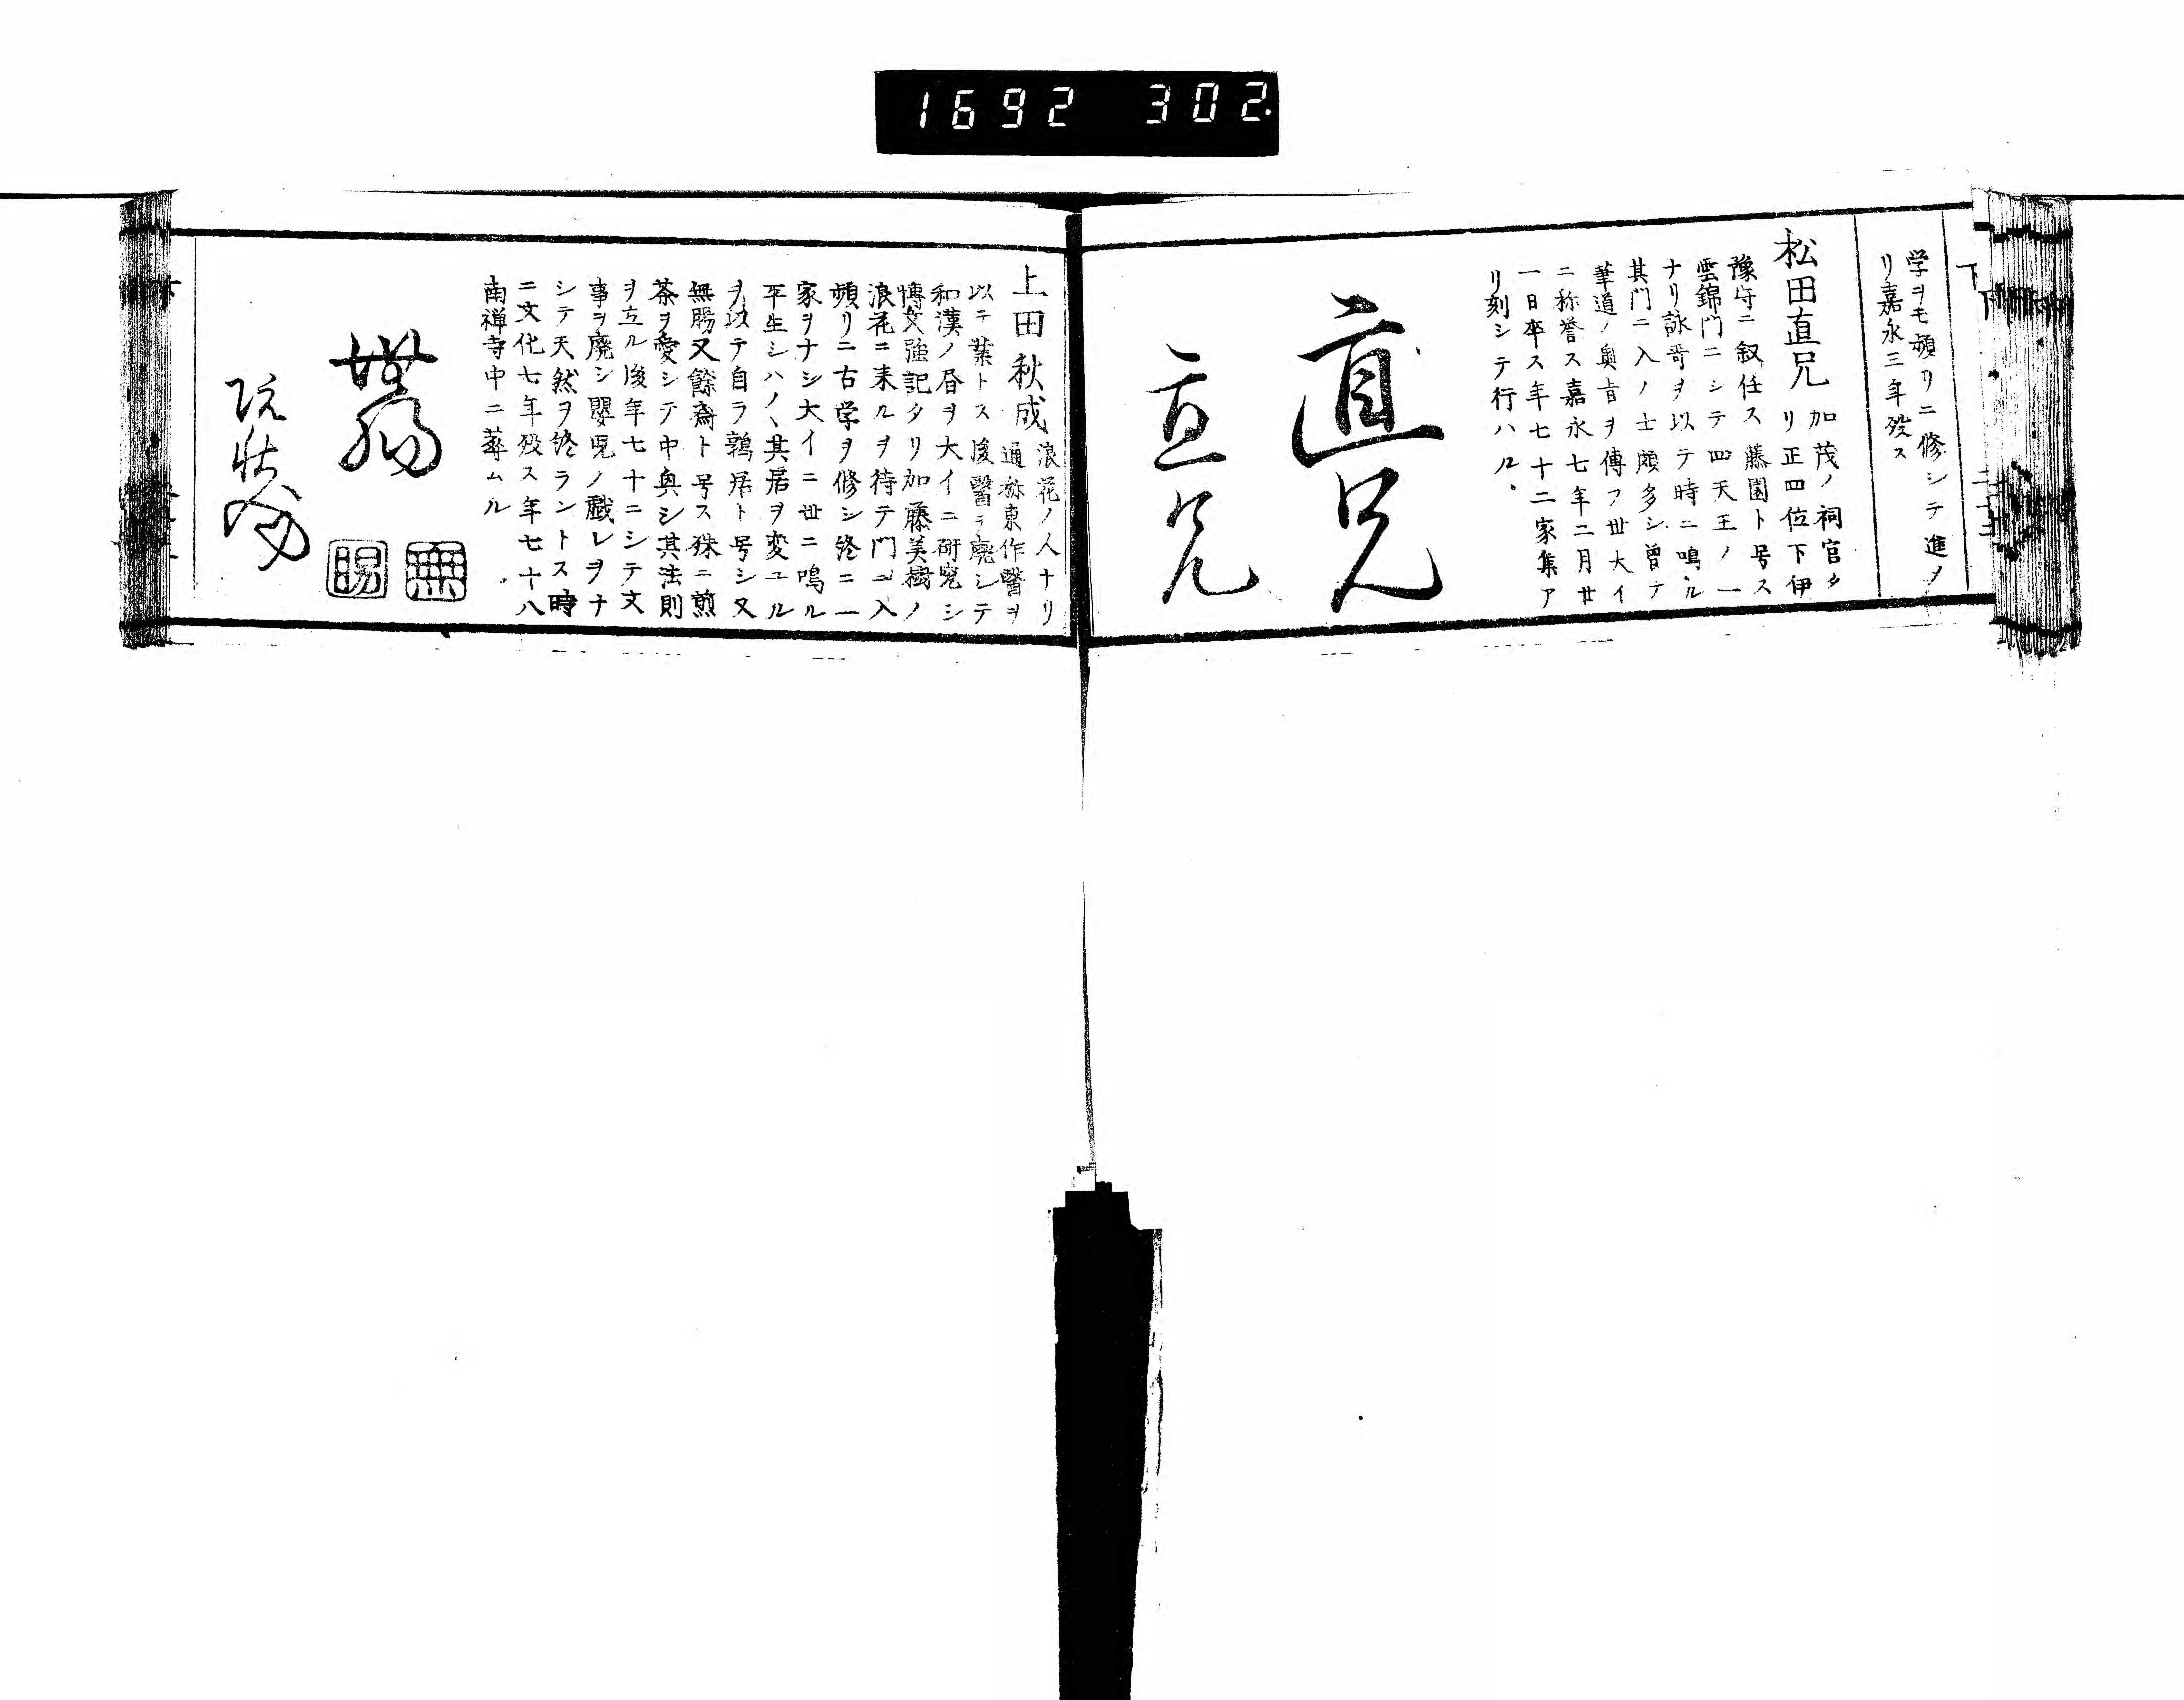 1692 302.
学ヲモ頻リニ修シテ進ノ
リ嘉永三年歿ス
松田直兄 加茂ノ祠官タ
リ正四位下伊
豫守ニ叙任ス藤園ト号ス
雲錦門ニシテ四天王ノ一
ナリ詠哥ヲ以テ時ニ鳴ル
其門ニ入ノ士頗多シ曽テ
筆道ノ奥旨ヲ傳フ世大イ
ニ称誉ス嘉永七年二月廿
一日卒ス年七十二家集ア
リ刻シテ行ハル
直兄
直兄
上田秋成 浪花ノ人ナリ
通称東作醫ヲ
以テ業トス後醫ヲ廃シテ
和漢ノ昏ヲ大イニ研究シ
博文強記タリ加藤美樹ノ
浪花ニ来ルヲ待テ門ニ入
頻リニ古学ヲ修シ終ニ一
家ヲナシ大イニ世ニ鳴ル
平生シハ〱其居ヲ変ユル
ヲ以テ自ラ鶉居ト号シ又
無腸又餘齋ト号ス殊ニ煎
茶ヲ愛シテ中奥シ其法則
ヲ立ル後年七十ニシテ文
事ヲ廃シ嬰児ノ戯レヲナ
シテ天然ヲ終ラントス時
ニ文化七年歿ス年七十八
南禅寺中ニ葬ムル
無腸
無
腸